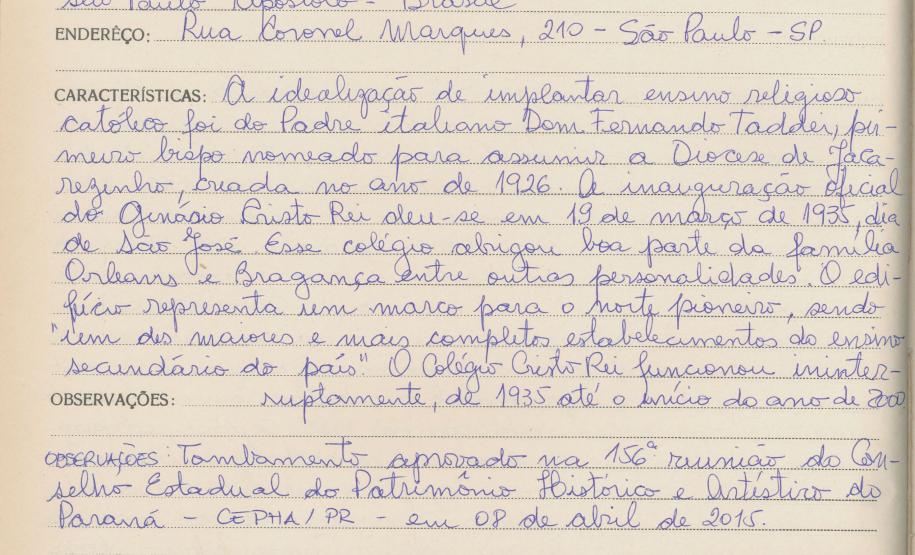 São Paulo Apóstolo - Brasil
ENDERÊÇO: Rua Coronel Marques, 210 - São Paulo - SP.
CARACTERÍSTICAS: A idealização de implantar ensino religioso
católico foi do Padre italiano Dom Fernando Taddei, pri-
meiro bispo nomeado para assumir a Diocese de Jaca-
rezinho, criada no ano de 1926. A inauguração oficial
do Ginásio Cristo Rei deu-se em 19 de março de 1935, dia
de São José. Esse colégio abrigou boa parte da família
Orleans e Bragança entre outras personalidades. O edi-
fício representa um marco para o norte pioneiro, sendo
"um dos maiores e mais completos estabelecimentos do ensino
secundário do país". O Colégio Cristo Rei funcionou ininter-
OBSERVAÇÕES: ruptamente, de 1935 até o início do ano de 2000
OBSERVAÇÕES: Tombamento aprovado na 156ª reunião do Con-
selho Estadual do Patrimônio Histórico e Artístico do
Paraná - CEPHA/PR - em 08 de abril de 2015.